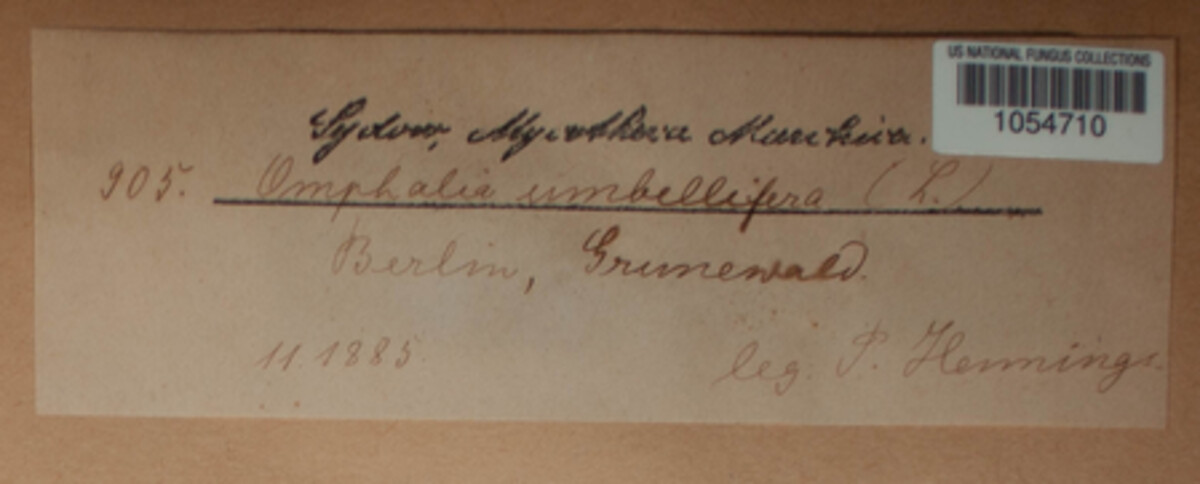 US NATIONAL FUNGUS COLLECTIONS
1054710
Sydow, Mycotheca Marchica.
905. Omphalia umbellifera (L.)
Berlin, Grunewald.
11.1885
leg. P. Hennings.